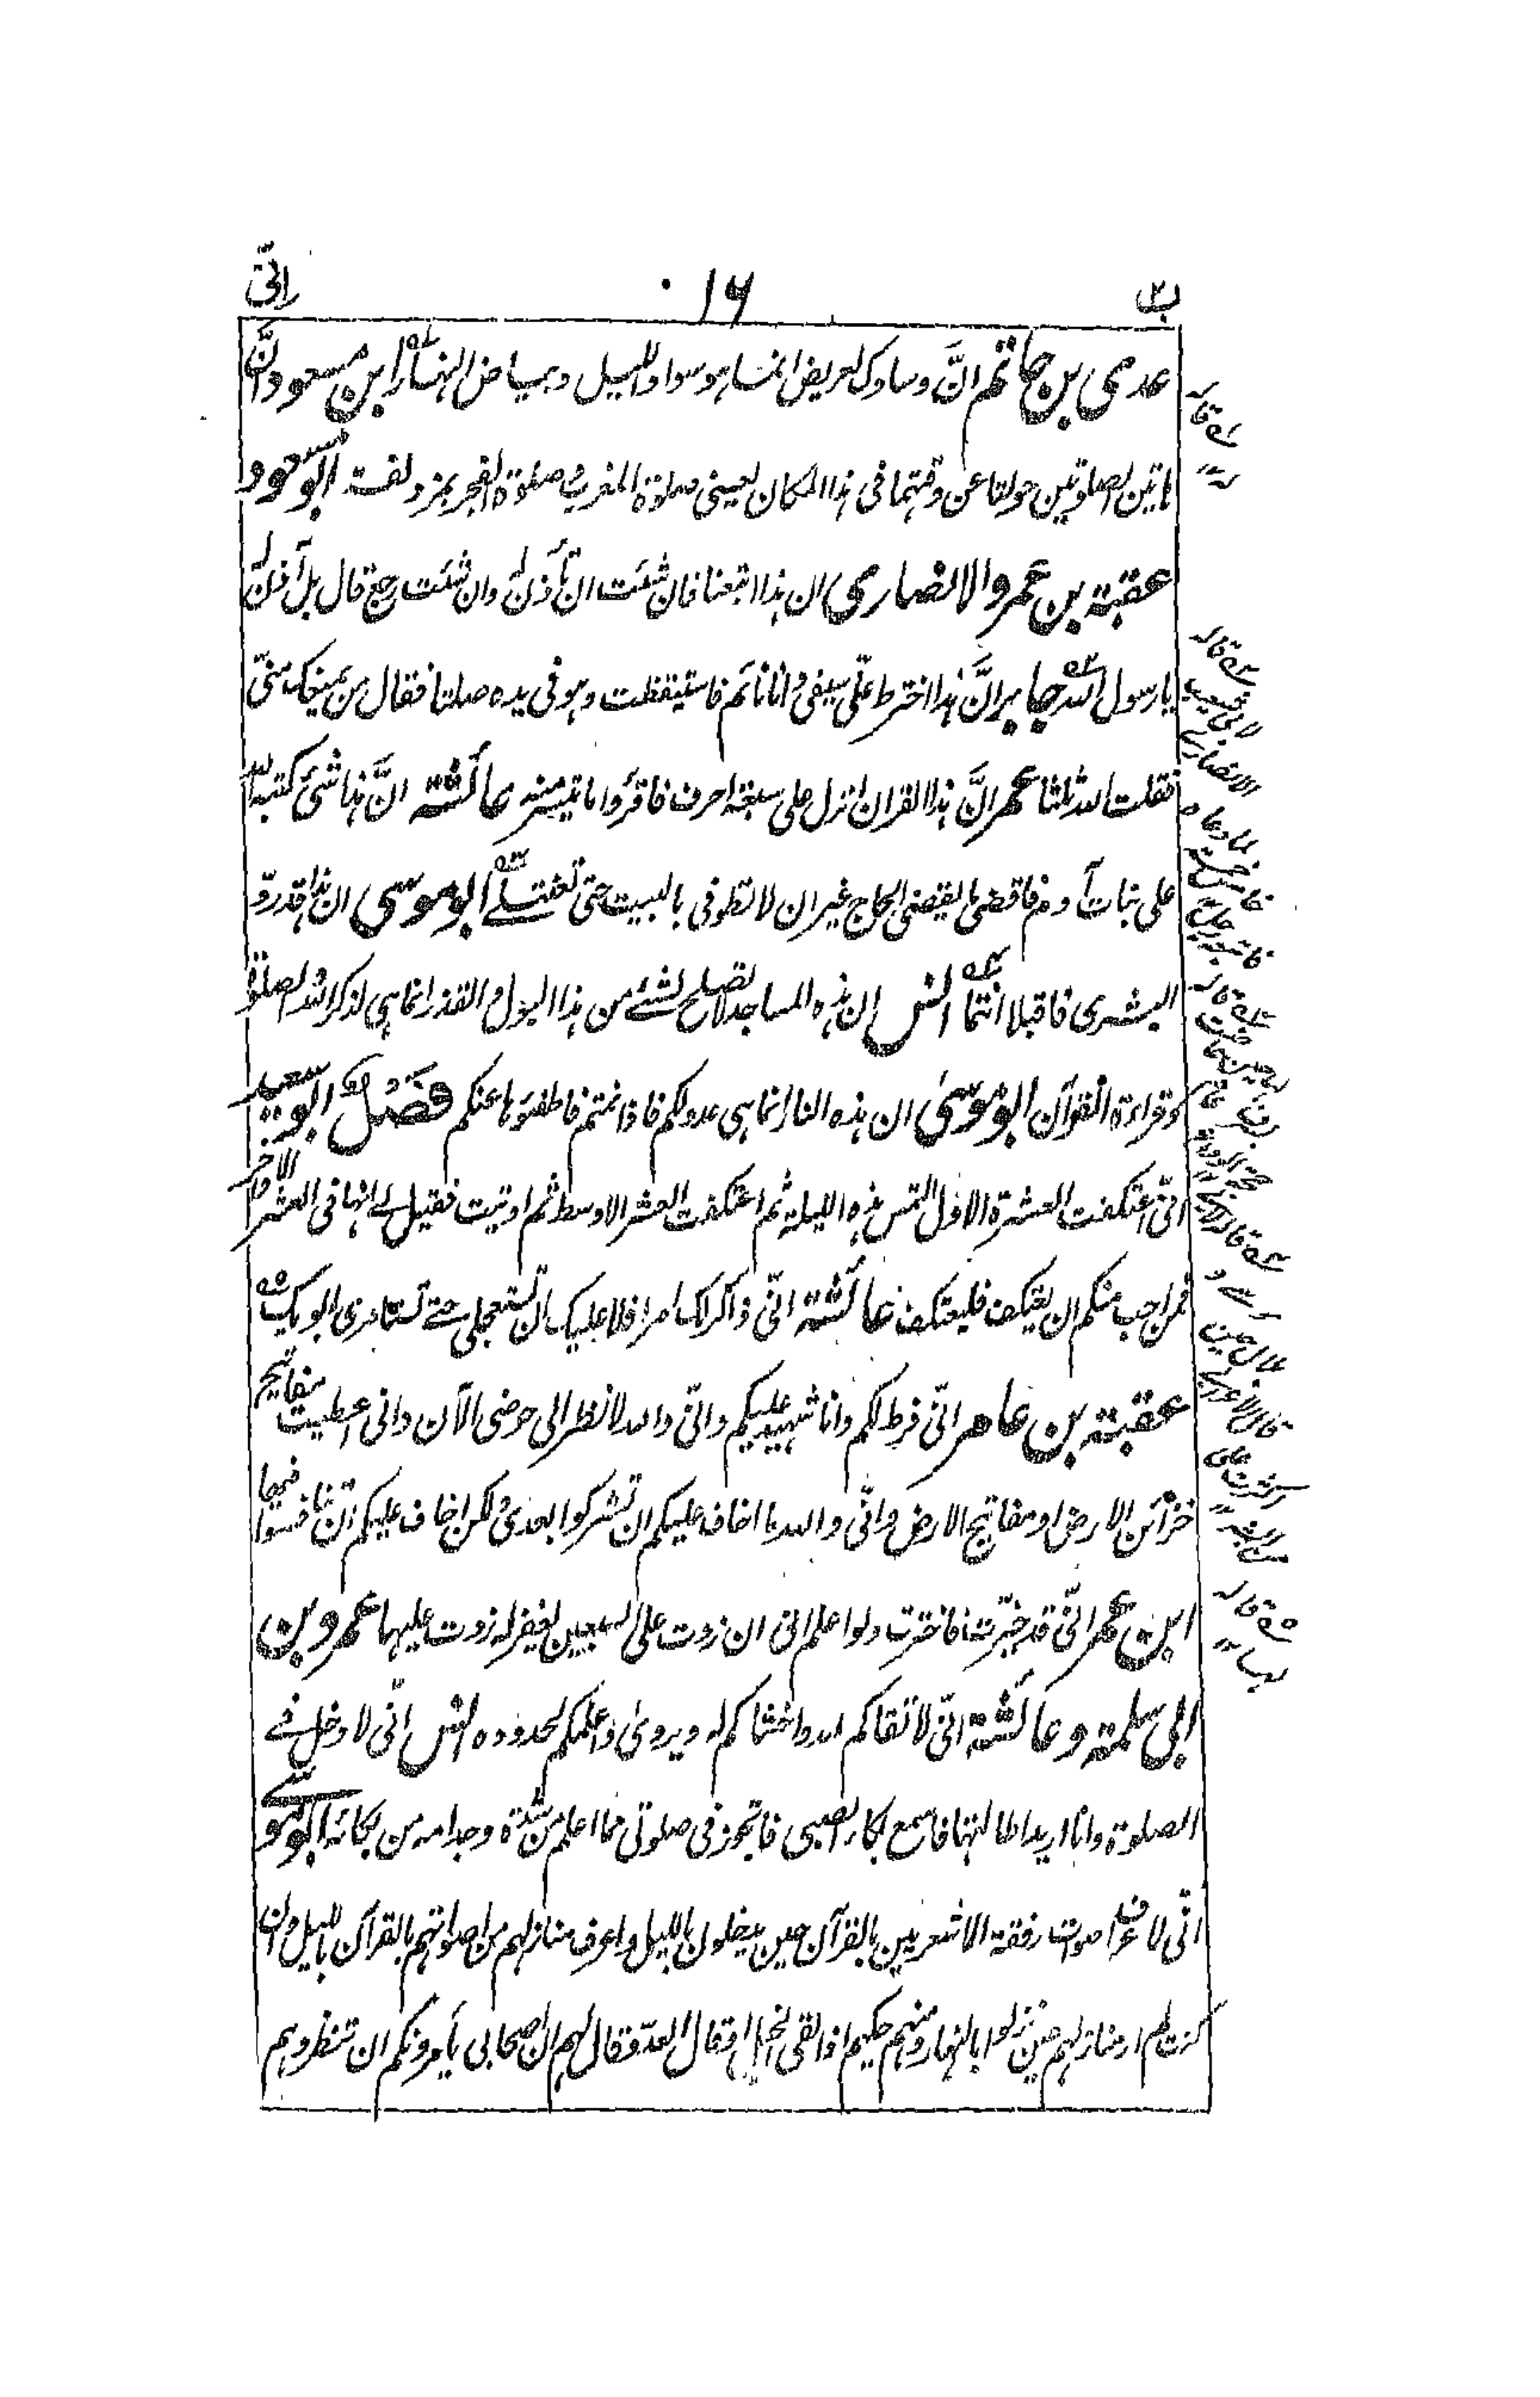 ب٢ ١٦ اِنّي
عدي بن حاتم انَّ وسادك لعريض انما هو سواد الليل وبياض النهار ابن مسعود انَّ
هاتين الصلوتين حولتا عن وقتهما فى هذا المكان يعنى صلوة المغرب و صلوة الفجر بمزدلفة ابو مسعود
عقبة بن عمرو الانصاري ان هذا اتبعنا فان شئت ان تأذن له وان شئت رجع قال بل آذن له
يا رسول الله جابر انَّ هذا اخترط علّى سيفى وانا نائم فاستيقظت وهو فى يده صلتا فقال من يمنعك منّى
فقلت الله ثلثا عمر انَّ هذا القران انزل على سبعة احرف فاقرؤا ما تيسر منه عائشة انَّ هذا شئ كتبه الله
على بنات آدم فاقضى ما يقضى الحاج غير ان لا تطوفى بالبيت حتى تغتسلے ابو موسى ان هذا قد ردّ
البشرى فاقبلا انتما انس ان هذه المساجد لا تصلح لشئے من هذا البول والقذر انما هى لذكر الله والصلوة
وقراءة القرآن ابو موسى ان هذه النار انما هى عدو لكم فاذا نمتم فاطفئوها عنكم فصل ابو سعيد
انّى اعتكفت العشرة الاول التمس هذه الليلة ثم اعتكفت العشر الاوسط ثم اوتيت فقيل لے انها فى العشر الاواخر
فمن احب منكم ان يعتكف فليعتكف عائشة انّى ذاكر لك امرا فلا عليك ان تستعجلى حتے تستامرى ابويك
عقبة بن عامر انّى فرط لكم وانا شهيد عليكم وانّى والله لانظر الى حوضى الآن وانى اعطيت مفاتيح
خزائن الارض او مفاتيح الارض وانّى والله ما اخاف عليكم ان تشركوا بعدى ولكن اخاف عليكم ان تنافسوا فيها
ابن عمر انّى قد خيّرت فاخترت ولو اعلم انى ان زدت على السبعين يغفر له زدت عليها عمرو بن
ابى سلمة وعائشة انّى لاتقاكم لله واخشاكم له ويروى واعلمكم بحدوده انس انّى لادخل فے
الصلوة وانا اريد اطالتها فاسمع بكاء الصبى فاتجوز فى صلوتى مما اعلم من شدة وجد امه من بكائه ابو موسے
انّى لاعرف اصوات رفقة الاشعريين بالقرآن حين يدخلون بالليل واعرف منازلهم من اصواتهم بالقرآن بالليل وان
كنت لم ار منازلهم حين نزلوا بالنهار ومنهم حكيم اذا لقى الخيل او قال العدو قال لهم ان اصحابى يأمرونكم ان تنظروهم